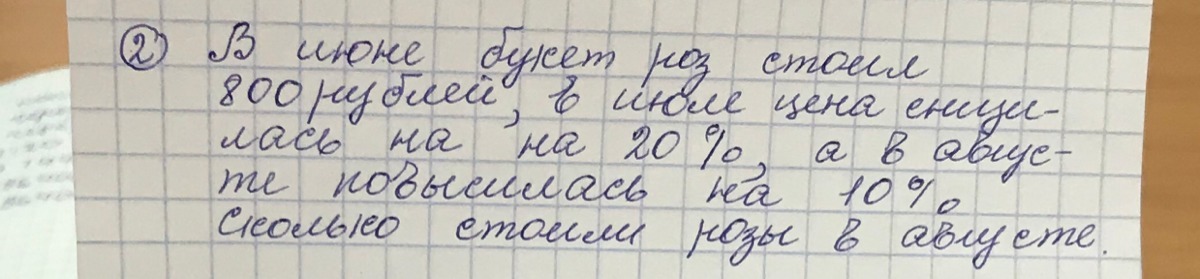 ② В июне букет роз стоил
800 рублей, в июле цена снизи-
лась на на 20%, а в авгус-
те повысилась на 10%.
Сколько стоили розы в августе.